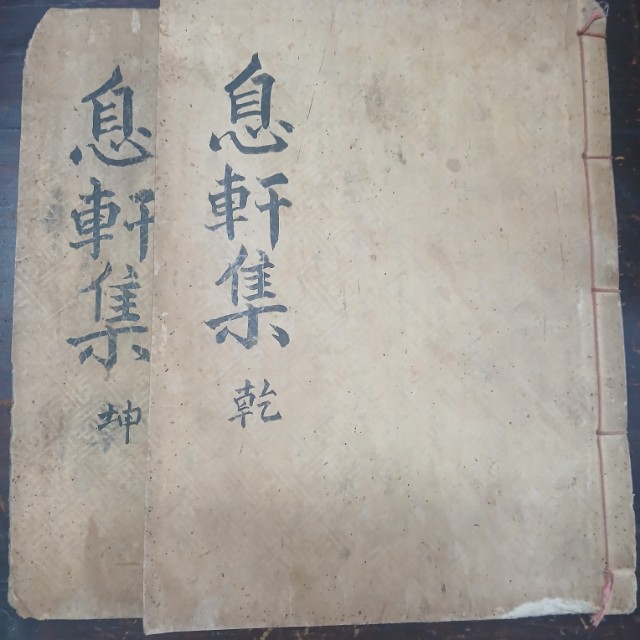 息軒集 乾
息軒集 坤